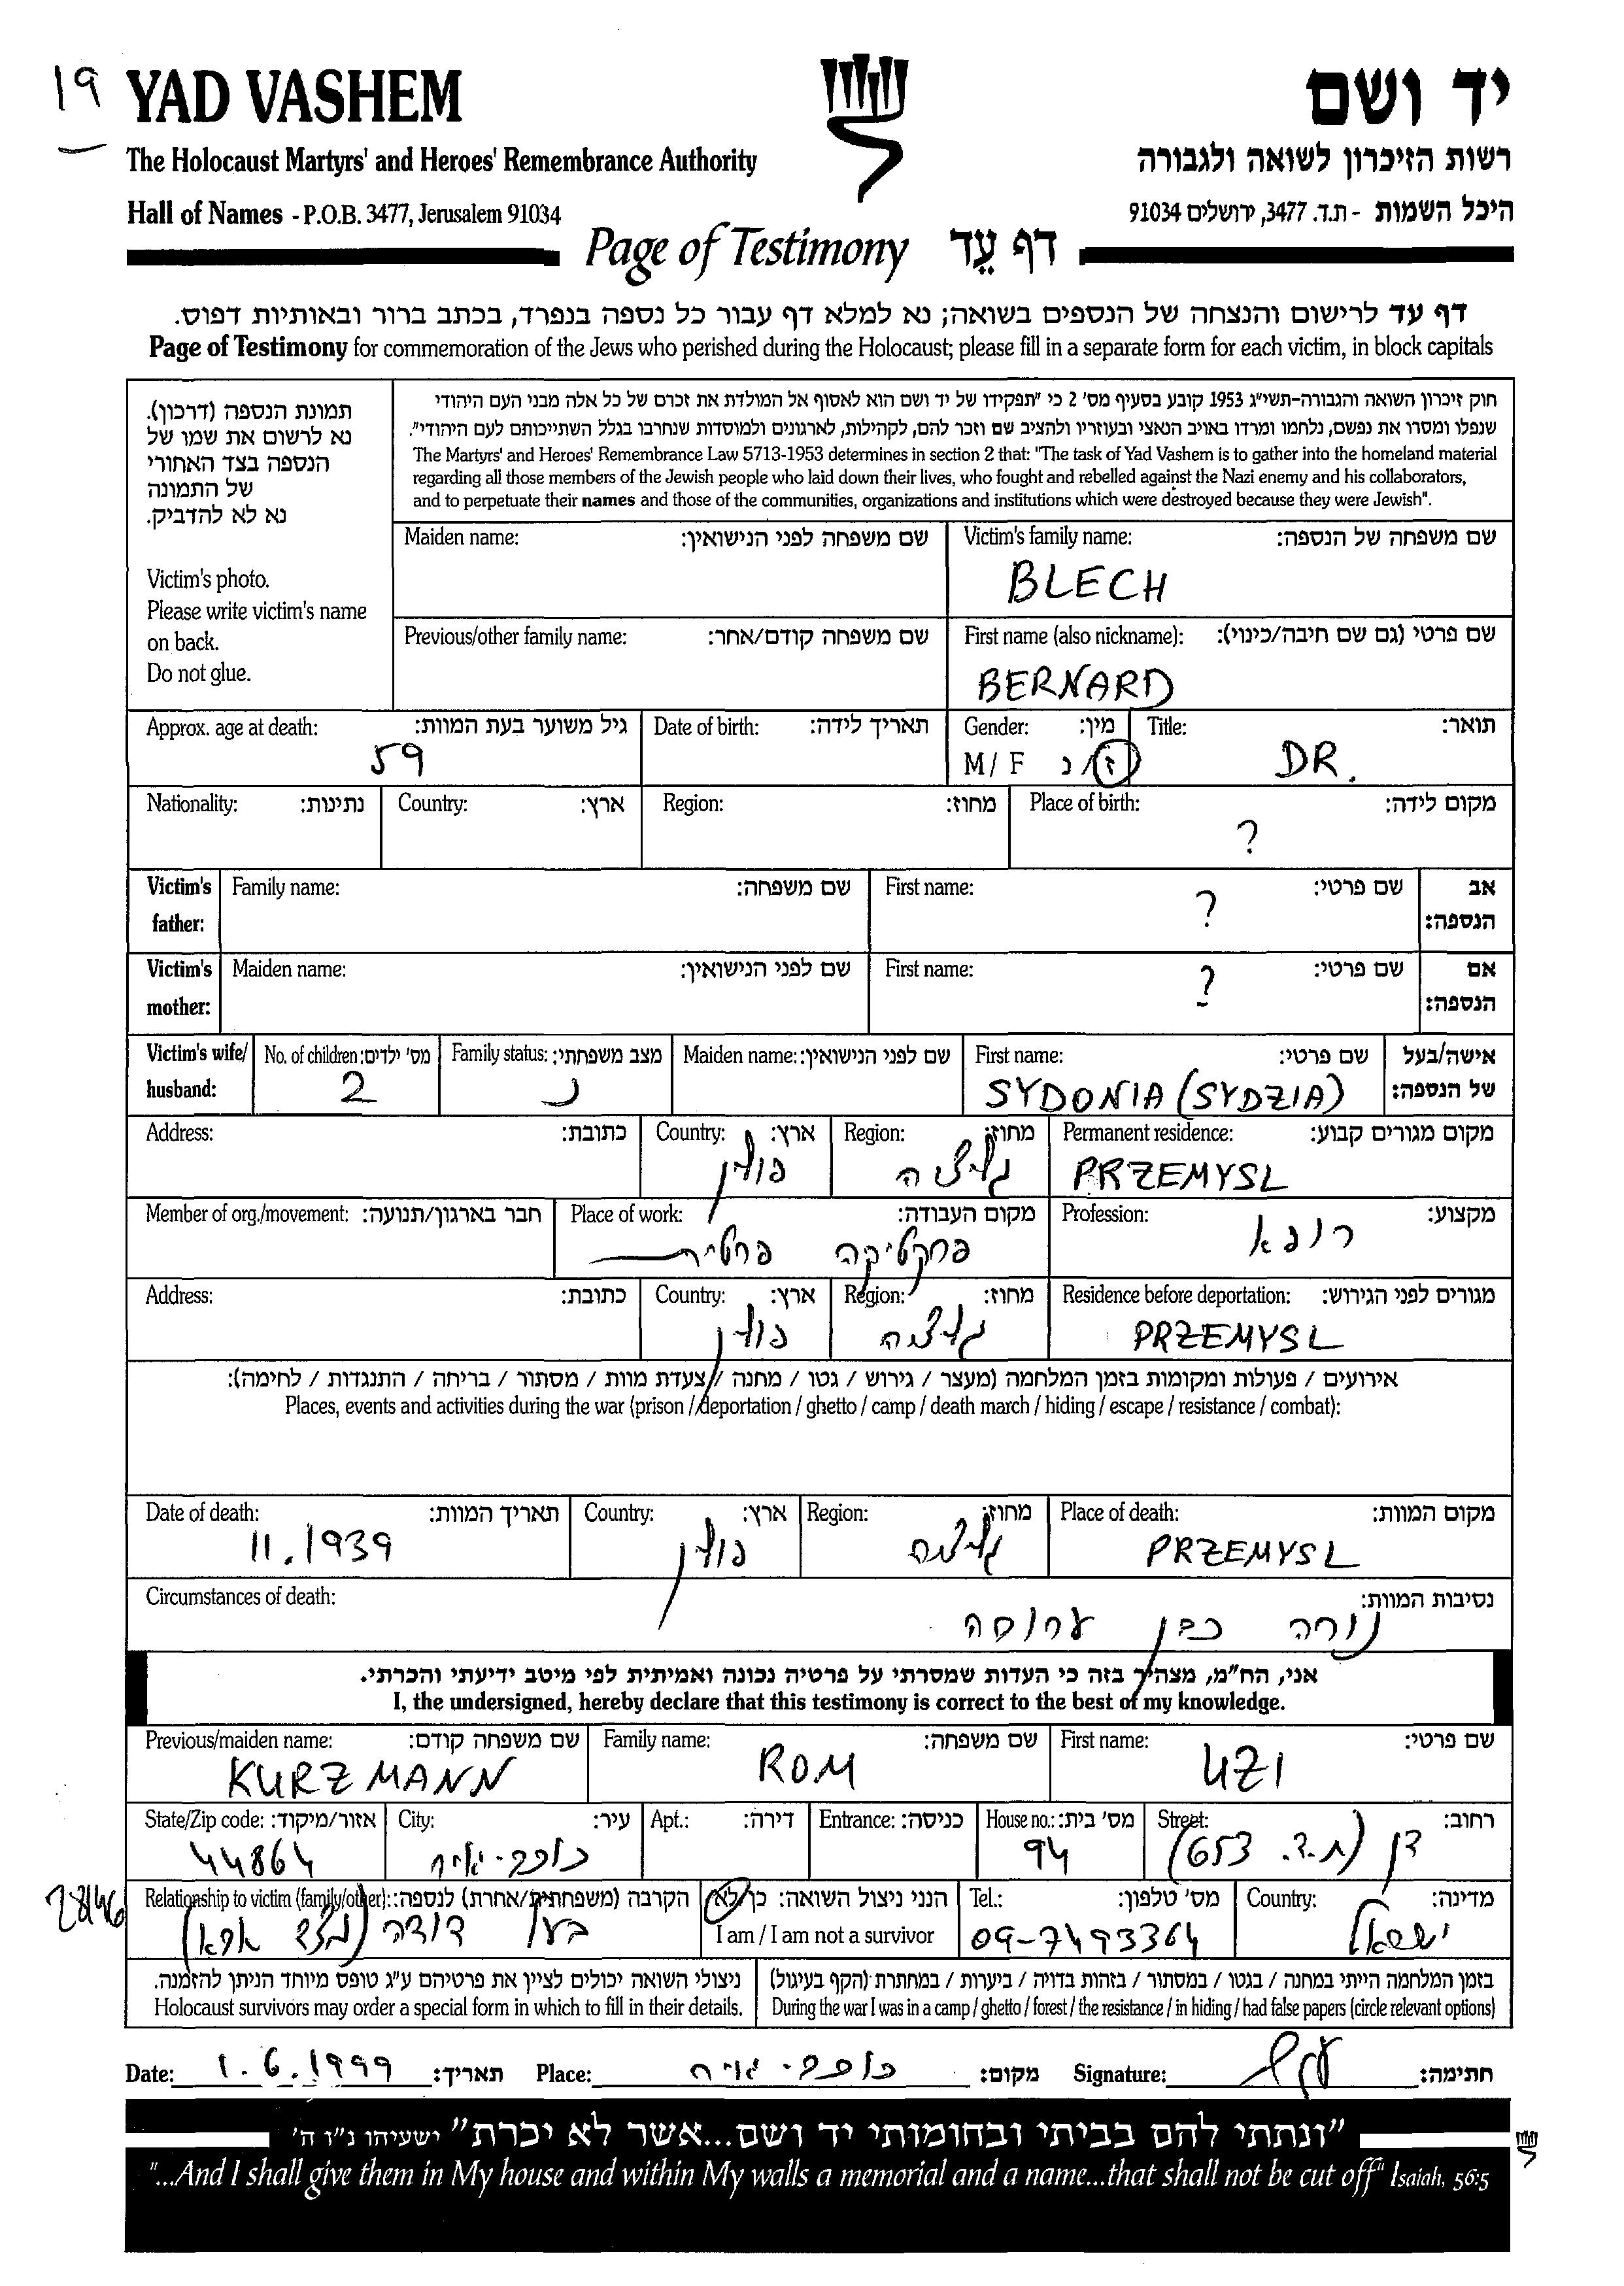 19
YAD VASHEM
יד ושם
The Holocaust Martyrs' and Heroes' Remembrance Authority
רשות הזיכרון לשואה ולגבורה
Hall of Names - P.O.B. 3477, Jerusalem 91034
היכל השמות - ת.ד. 3477, ירושלים 91034
Page of Testimony דף עֵד
דף עד לרישום והנצחה של הנספים בשואה; נא למלא דף עבור כל נספה בנפרד, בכתב ברור ובאותיות דפוס.
Page of Testimony for commemoration of the Jews who perished during the Holocaust; please fill in a separate form for each victim, in block capitals
תמונת הנספה (דרכון).
נא לרשום את שמו של
הנספה בצד האחורי
של התמונה
נא לא להדביק.
Victim's photo.
Please write victim's name
on back.
Do not glue.
חוק זיכרון השואה והגבורה-תשי"ג 1953 קובע בסעיף מס' 2 כי "תפקידו של יד ושם הוא לאסוף אל המולדת את זכרם של כל אלה מבני העם היהודי
שנפלו ומסרו את נפשם, נלחמו ומרדו באויב הנאצי ובעוזריו ולהציב שם וזכר להם, לקהילות, לארגונים ולמוסדות שנחרבו בגלל השתייכותם לעם היהודי".
The Martyrs' and Heroes' Remembrance Law 5713-1953 determines in section 2 that: "The task of Yad Vashem is to gather into the homeland material
regarding all those members of the Jewish people who laid down their lives, who fought and rebelled against the Nazi enemy and his collaborators,
and to perpetuate their names and those of the communities, organizations and institutions which were destroyed because they were Jewish".
Maiden name: שם משפחה לפני הנישואין:
Victim's family name: שם משפחה של הנספה:
BLECH
Previous/other family name: שם משפחה קודם/אחר:
First name (also nickname): שם פרטי (גם שם חיבה/כינוי):
BERNARD
Approx. age at death: גיל משוער בעת המוות:
59
Date of birth: תאריך לידה:
Gender: מין:
M / F ז/נ
Title: תואר:
DR.
Nationality: נתינות:
Country: ארץ:
Region: מחוז:
Place of birth: מקום לידה:
?
Victim's father:
Family name: שם משפחה:
First name: שם פרטי:
?
אב הנספה:
Victim's mother:
Maiden name: שם לפני הנישואין:
First name: שם פרטי:
?
אם הנספה:
Victim's wife/ husband:
No. of children: מס' ילדים:
2
Family status: מצב משפחתי:
נ
Maiden name: שם לפני הנישואין:
First name: שם פרטי:
SYDONIA (SYDZIA)
אישה/בעל של הנספה:
Address: כתובת:
Country: ארץ:
פולין
Region: מחוז:
גליציה
Permanent residence: מקום מגורים קבוע:
PRZEMYSL
Member of org./movement: חבר בארגון/תנועה:
Place of work: מקום העבודה:
פרקטיקה פרטית
Profession: מקצוע:
רופא
Address: כתובת:
Country: ארץ:
פולין
Region: מחוז:
גליציה
Residence before deportation: מגורים לפני הגירוש:
PRZEMYSL
אירועים / פעולות ומקומות בזמן המלחמה (מעצר / גירוש / גטו / מחנה / צעדת מוות / מסתור / בריחה / התנגדות / לחימה):
Places, events and activities during the war (prison / deportation / ghetto / camp / death march / hiding / escape / resistance / combat):
Date of death: תאריך המוות:
11.1939
Country: ארץ:
פולין
Region: מחוז:
גליציה
Place of death: מקום המוות:
PRZEMYSL
Circumstances of death: נסיבות המוות:
נורה כבן ערובה
אני, הח"מ, מצהיר בזה כי העדות שמסרתי על פרטיה נכונה ואמיתית לפי מיטב ידיעתי והכרתי.
I, the undersigned, hereby declare that this testimony is correct to the best of my knowledge.
Previous/maiden name: שם משפחה קודם:
KURZMANN
Family name: שם משפחה:
ROM
First name: שם פרטי:
UZI
State/Zip code: אזור/מיקוד:
44864
City: עיר:
כוכב-יאיר
Apt.: דירה:
Entrance: כניסה:
House no.: מס' בית:
94
Street: רחוב:
דן (ת.ד. 653)
28146
Relationship to victim (family/other): הקרבה (משפחתית/אחרת) לנספה:
בעל דודה (מצד אבא)
הנני ניצול השואה: כן/לא
I am / I am not a survivor
Tel.: מס' טלפון:
09-7493364
Country: מדינה:
ישראל
ניצולי השואה יכולים לציין את פרטיהם ע"ג טופס מיוחד הניתן להזמנה.
Holocaust survivors may order a special form in which to fill in their details.
בזמן המלחמה הייתי במחנה / בגטו / במסתור / בזהות בדויה / ביערות / במחתרת (הקף בעיגול)
During the war I was in a camp / ghetto / forest / the resistance / in hiding / had false papers (circle relevant options)
Date: 1.6.1999 תאריך: Place: כוכב-יאיר מקום: Signature: חתימה:
"ונתתי להם בביתי ובחומותי יד ושם...אשר לא יכרת" ישעיהו נ"ו ה'
"...And I shall give them in My house and within My walls a memorial and a name...that shall not be cut off" Isaiah, 56:5